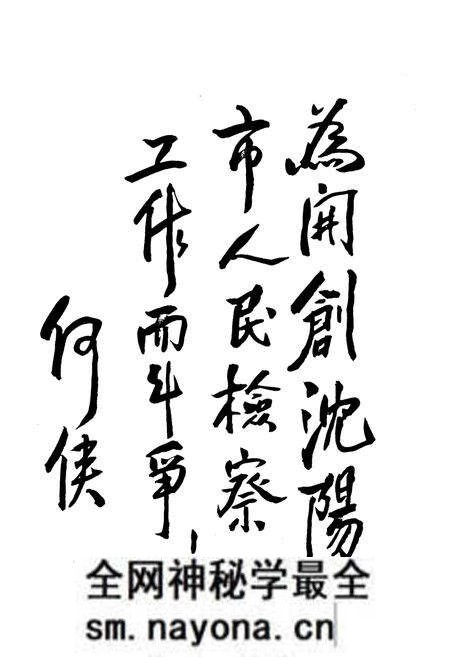 為開創沈陽
市人民檢察
工作而斗爭
何侠
全网神秘学最全
sm.nayona.cn